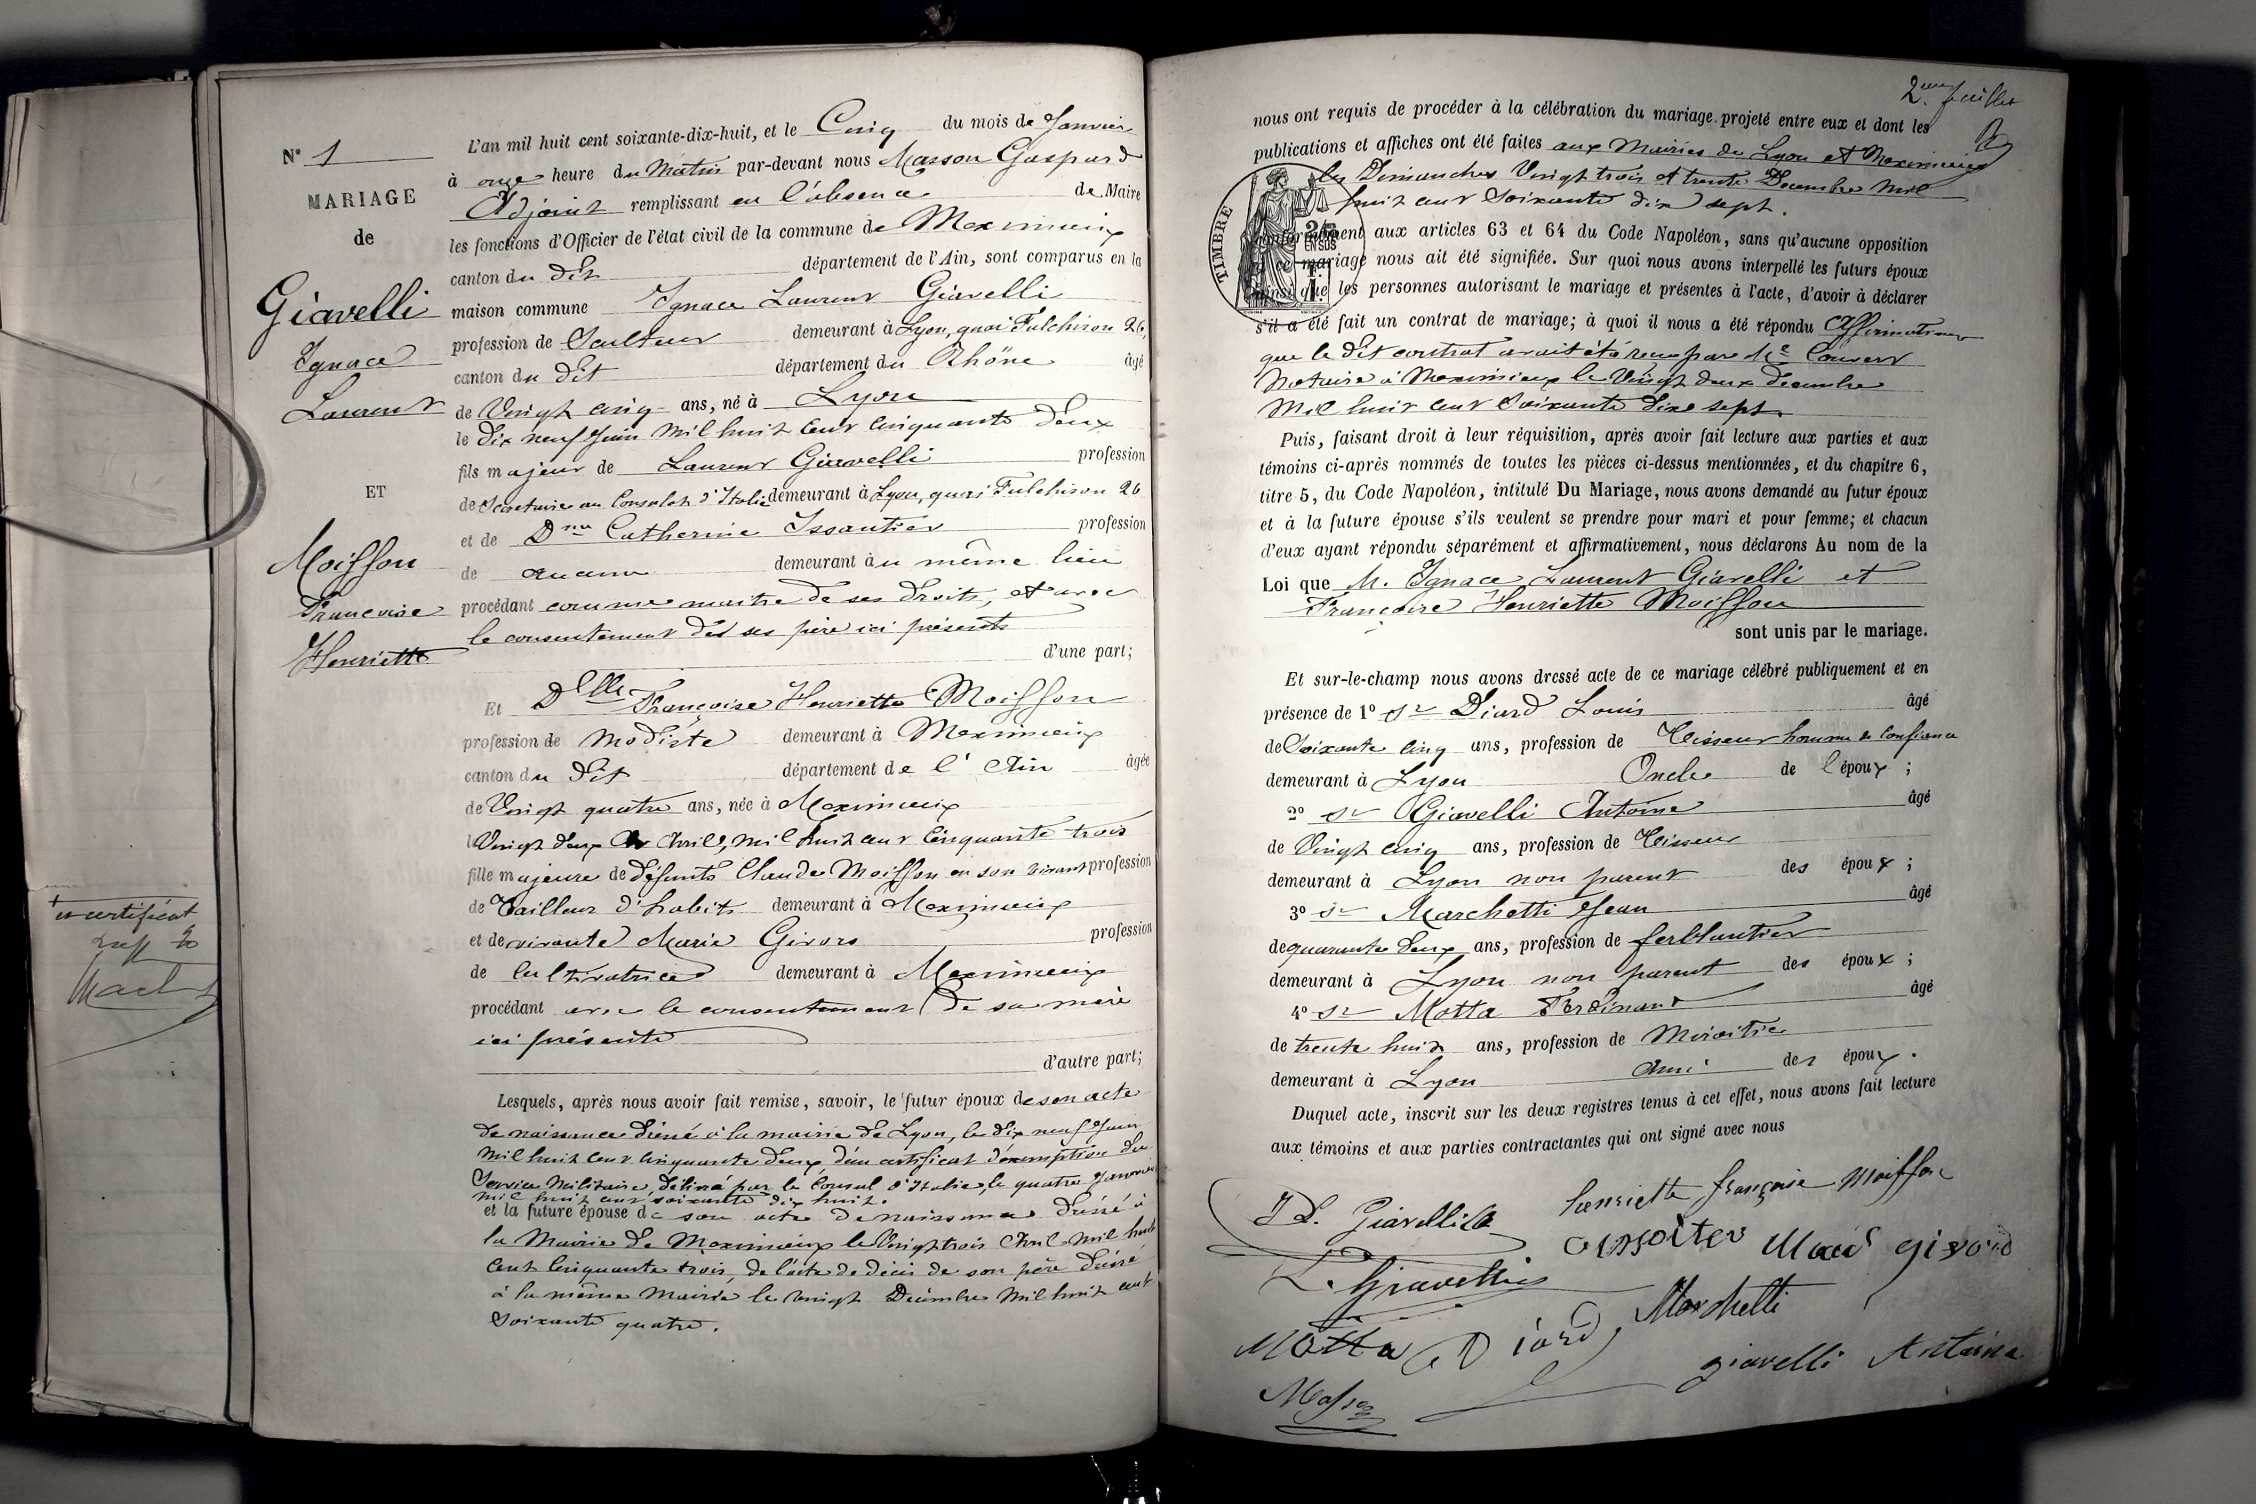 N° 1
MARIAGE
de
Giavelli
Ignace
Laurent
ET
Moiſſon
Francoise
Henriette
L'an mil huit cent soixante-dix-huit, et le Cinq du mois de Janvier
à onze heure du Matin par-devant nous Masson Gaspard
Adjoint remplissant en l'absence de Maire
les fonctions d'Officier de l'état civil de la commune de Meximieux
canton du dit département de l'Ain, sont comparus en la
maison commune Ignace Laurent Giavelli
profession de Sculteur demeurant à Lyon, quai Fulchiron 26,
canton du dit département du Rhône âgé
de Vingt cinq ans, né à Lyon
le dix neuf Juin mil huit cent cinquante deux
fils majeur de Laurent Giavelli profession
de Secretaire au Consulat d'Italie demeurant à Lyon, quai Fulchiron 26
et de Dme Catherine Issautier profession
de aucune demeurant au même lieu
procédant comme maitre de ses droits, et avec
le consentement de ses père ici présents
d'une part;
Et Delle Françoise Henriette Moiſſon
profession de Modiste demeurant à Meximieux
canton du dit département de l'Ain âgée
de Vingt quatre ans, née à Meximieux
le Vingt deux Avril, mil huit cent Cinquante trois
fille majeure de défunts Claude Moiſſon en son vivant profession
de Tailleur d'habits demeurant à Meximieux
et de vivante Marie Givors profession
de Cultivatrice demeurant à Meximieux
procédant avec le consentement de sa mère
ici présente
d'autre part;
Lesquels, après nous avoir fait remise, savoir, le futur époux de son acte
de naissance dréssé à la mairie de Lyon, le dix neuf Juin
mil huit cent cinquante deux d'un certificat d'éxemption du
Service Militaire, délivré par le Consul d'Italie, le quatre Janvier
mil huit cent soixante dix huit.
et la future épouse de son acte de naissance dréssé à
la Mairie de Meximieux le Vingt trois Avril mil huit
cent Cinquante trois, de l'acte de décès de son père dréssé
à la même Mairie le vingt Décembre mil huit cent
soixante quatre.
+ et certificat
2me feuillet
nous ont requis de procéder à la célébration du mariage projeté entre eux et dont les
publications et affiches ont été faites aux Mairies de Lyon et Meximieux
les Dimanches Vingt trois et trente Decembre Mil
huit cent Soixante dix sept.
TIMBRE
2/10
EN SUS
conformément aux articles 63 et 64 du Code Napoléon, sans qu'aucune opposition
à ce mariage nous ait été signifiée. Sur quoi nous avons interpellé les futurs époux
ainsi que les personnes autorisant le mariage et présentes à l'acte, d'avoir à déclarer
s'il a été fait un contrat de mariage; à quoi il nous a été répondu Affirmativement
que le dit contrat avait été reçu par Me Convert
Notaire à Meximieux le Vingt deux décembre
Mil huit cent Soixante dixe sept.
Puis, faisant droit à leur réquisition, après avoir fait lecture aux parties et aux
témoins ci-après nommés de toutes les pièces ci-dessus mentionnées, et du chapitre 6,
titre 5, du Code Napoléon, intitulé Du Mariage, nous avons demandé au futur époux
et à la future épouse s'ils veulent se prendre pour mari et pour femme; et chacun
d'eux ayant répondu séparément et affirmativement, nous déclarons Au nom de la
Loi que M. Ignace Laurent Giavelli et
Françoise Henriette Moiſſon
sont unis par le mariage.
Et sur-le-champ nous avons dressé acte de ce mariage célébré publiquement et en
présence de 1° Sr Diard Louis âgé
de Soixante Cinq ans, profession de Tisseur homme de Confiance
demeurant à Lyon Oncle de l'époux;
2° Sr Giavelli Antoine âgé
de Vingt cinq ans, profession de Tisseur
demeurant à Lyon non parent des époux;
3° Sr Marchetti Jean âgé
de quarante deux ans, profession de ferblantier
demeurant à Lyon non parent des époux;
4° Sr Motta Ferdinand âgé
de trente huit ans, profession de Miroitier
demeurant à Lyon Ami des époux.
Duquel acte, inscrit sur les deux registres tenus à cet effet, nous avons fait lecture
aux témoins et aux parties contractantes qui ont signé avec nous
henriette françoise Moiffon
I L. Giavelli
Marie givord
L. Giavelli
Marchetti
Motta Diard
giavelli Antoine
Masson